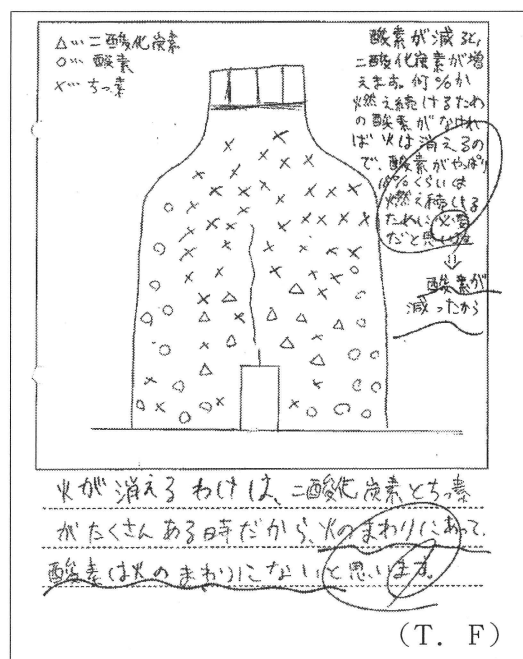 △…二酸化炭素
○…酸素
×…ちっ素
酸素が減ると、
二酸化炭素が増
えます。何%か
燃え続けるため
の酸素がなけれ
ば火は消えるの
で、酸素がやっぱり
%くらいは
燃え続ける
ために必要
だと思います。
⇓
酸素が
減ったから
火が消えるわけは、二酸化炭素とちっ素
がたくさんある時だから、火のまわりにあって、
酸素は火のまわりにないと思います。
(T. F)